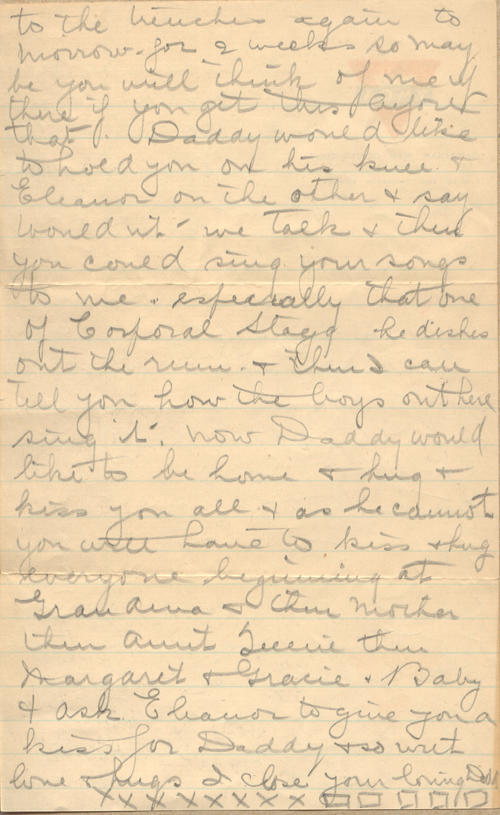 to the trenches again to
morrow for 2 weeks so may
be you will think of me up
there if you get this before
that. Daddy would like
to hold you on his knee &
Eleanor on the other & say
wouldn't we talk & then
you could sing your songs
to me. especially that one
of Corporal Stagg he dishes
out the rum. & then I can
tell you how the boys out here
sing it. now Daddy would
like to be home & hug &
kiss you all & as he cannot
you will have to kiss & hug
everyone beginning at
Grandma & then Mother
then Aunt then
Margaret & Gracie & Baby
& ask Eleanor to give you a
kiss for Daddy & so with
love & hugs I close your loving Dad
xxxxxxxxxx □□□□□□